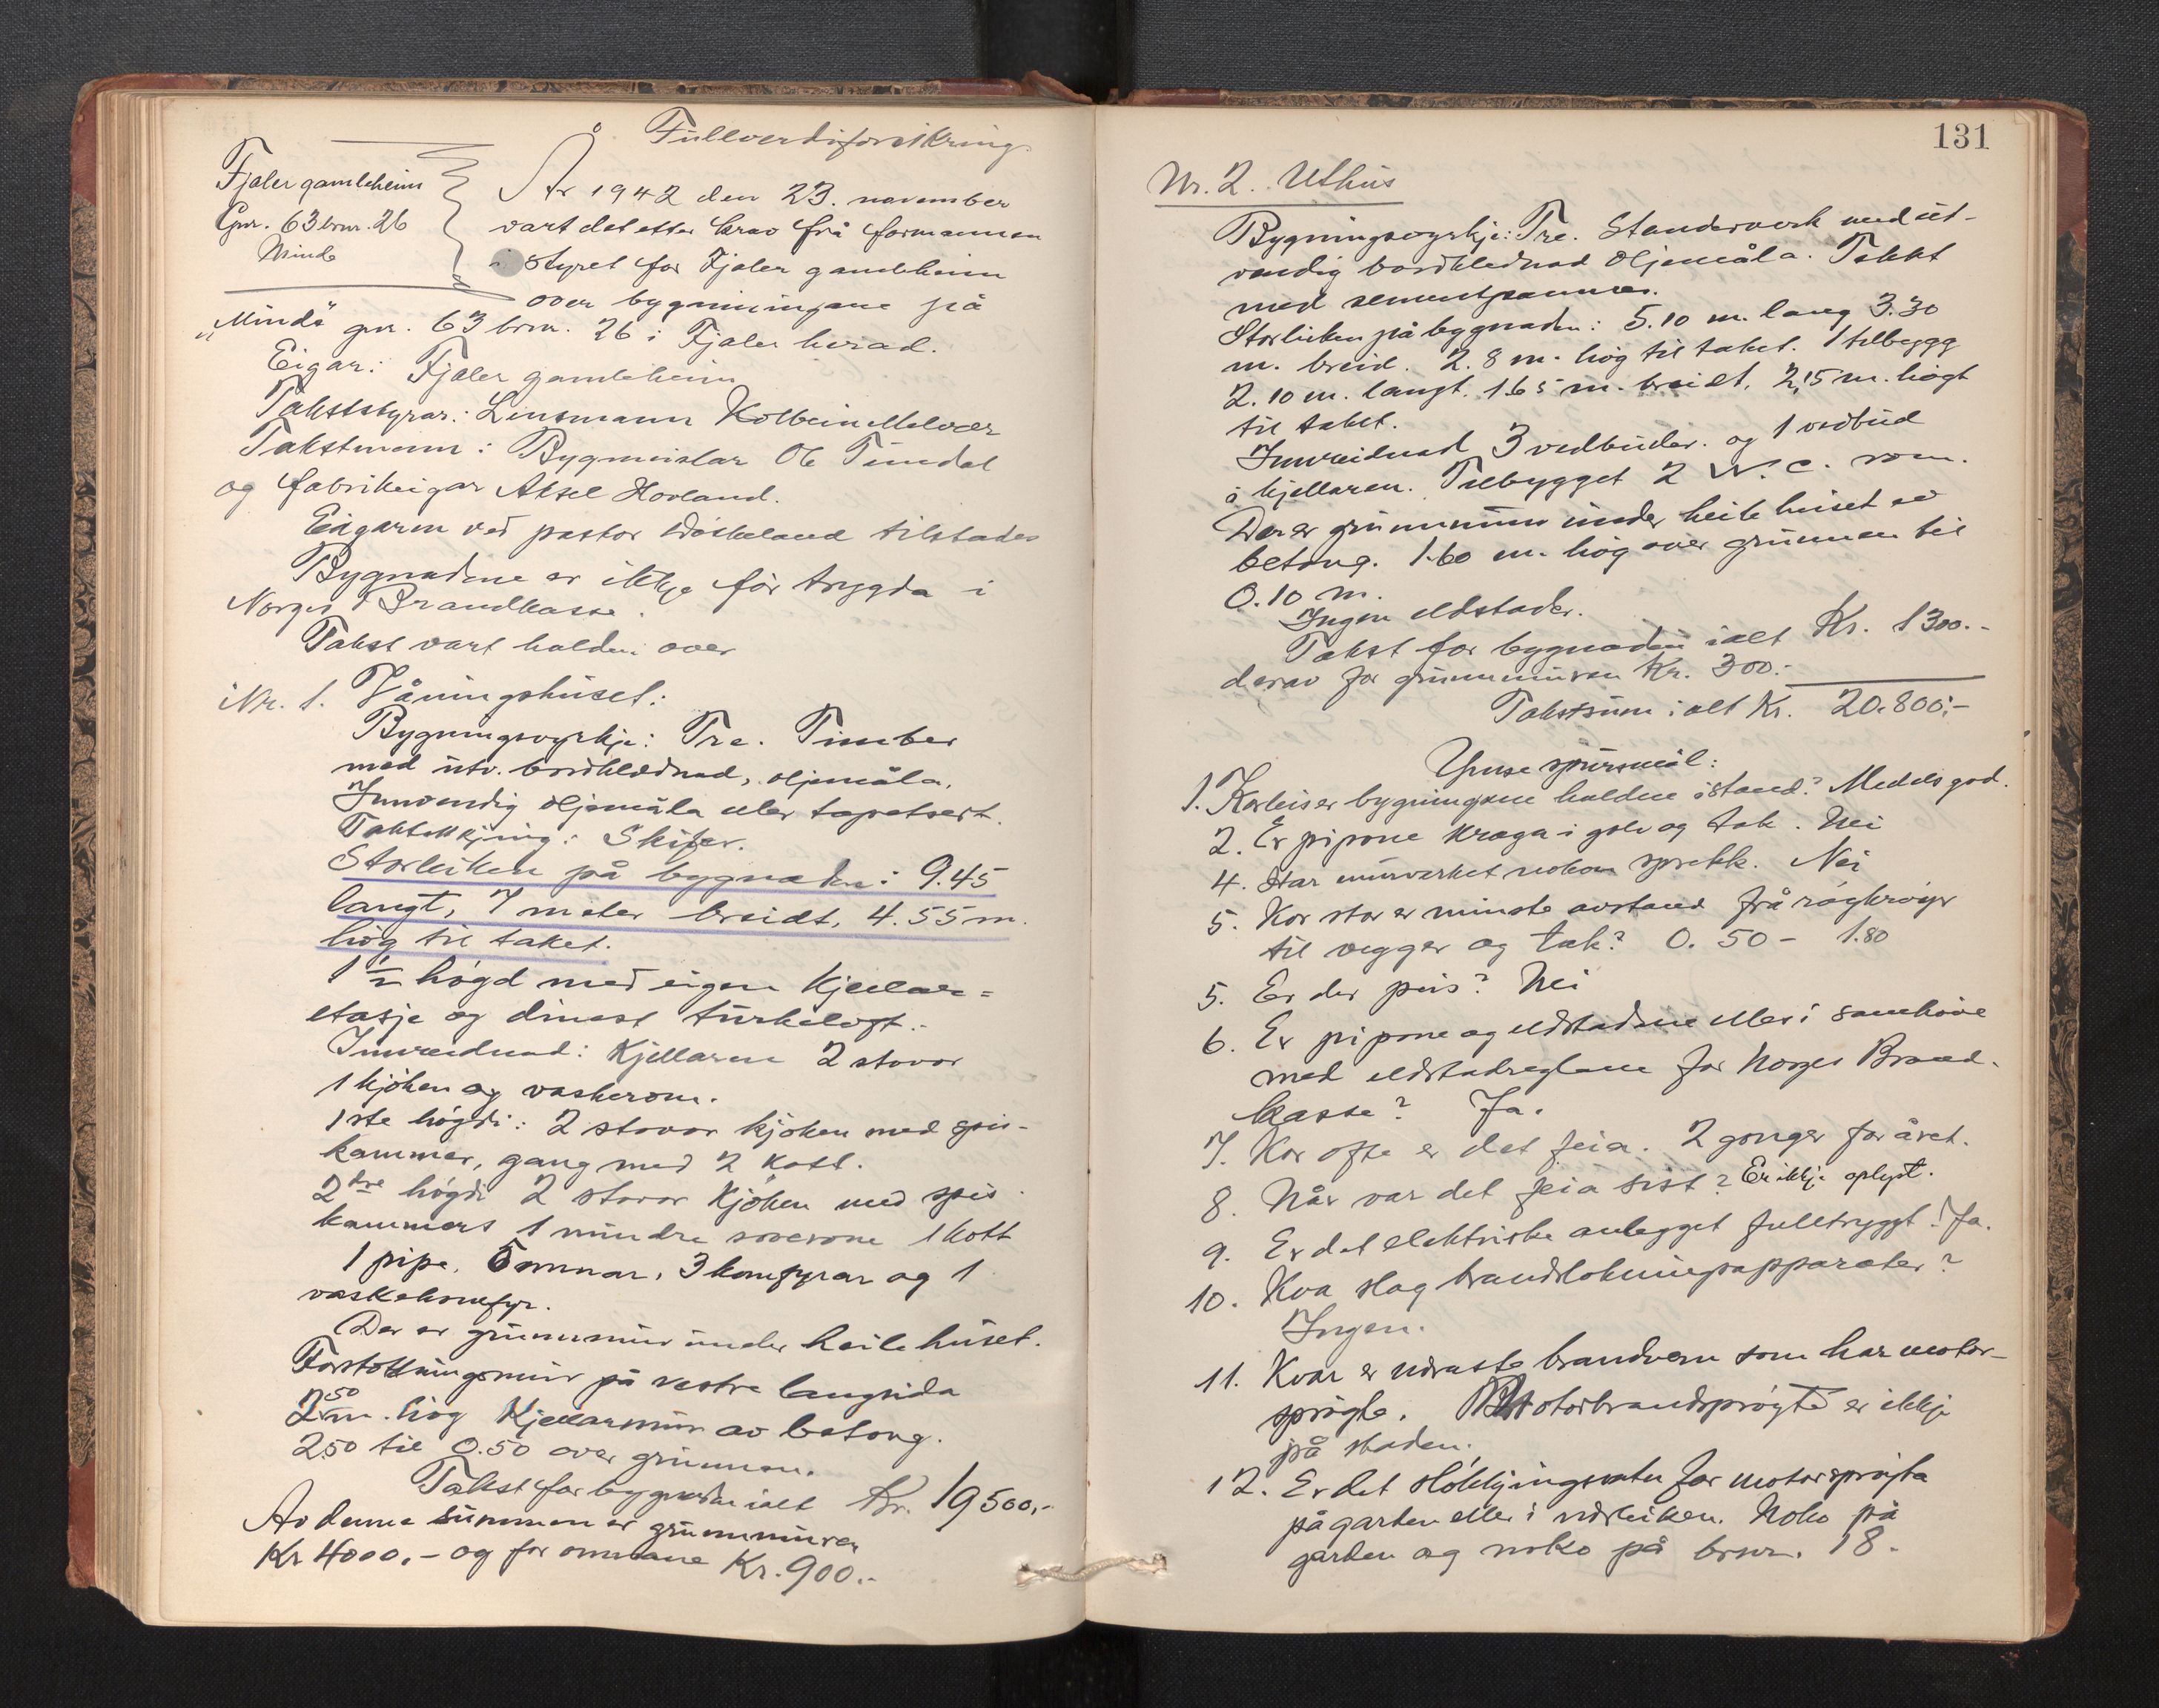 Fullverdiforsikring.
Fjaler gamleheim
Gnr. 63 brnr. 26
Minde
År 1942 den 23. november
vart det etter krav frå formannen
i styret for Fjaler gamleheim
over bygningane på
"Minde" gnr. 63 brnr. 26 i Fjaler herad.
Eigar: Fjaler gamleheim
Takststyrar: Lensmann Kolbein Melvær
Takstmenn: Bygmeistar Ole Tundal
og fabrikeigar Aksel Hovland.
Eigaren ved pastor tilstades
Bygnadene er ikkje før trygda i
Norges Brandkasse.
Takst vart halden over
Nr. 1. Våningshuset:
Bygningsvyrkje: Tre. Timber
med utv. bordklædnad, oljemåla.
Innvendig oljemåla eller tapetsert.
Taktekkjing: Skifer.
Storleiken på bygnaden: 9.45
langt, 7 meter breidt, 4.55 m.
høg til taket.
1 1/2 høgd med eigen kjellar=
etasje og dinest turkeloft.-
Innreidnad: Kjellaren 2 stovor
1 kjøken og vaskerom.
1ste høgdi: 2 stovor kjøken med spis-
kammer, gang med 2 kott.
2dre høgdi 2 stovor kjøken med spis
kammers 1 mindre soverom 1 kott
1 pipe, 5 omnar, 3 komfyrar og 1
vaskekomfyr.
Der er grunnmur under heile huset.
Forstøttningsmur på vestre langsida
2.50 m. høg Kjellarmur av betong.
2.50 til 0.50 over grunnen.
Takst for bygnaden ialt Kr. 19500,-
Av denne summen er grunnmuren
Kr 4000.- og for omnane Kr. 900.-
131
Nr. 2. Uthus
Bygningsvyrkje: Tre. Standerverk med ut-
vendig bordklednad oljemåla. Tekt
med sementpanner.
Storleiken på bygnaden: 5.10 m. lang 3.30
m. breid. 2.8 m. høg til taket. 1 tilbygg
2.10 m. langt. 1.65 m. breidt, 2,15 m. høgt
til taket.
Innreidnad 3 vedbuder. og 1 vedbud
i kjellaren. Tilbygget 2 W.C. rom.
Der er grunnmur under heile huset av
betong. 1.60 m. høg over grunnen til
0.10 m.
Ingen eldstader.
Takst for bygnaden ialt Kr. 1300.-
derav for grunnmuren Kr. 300.-
Takstsum i alt Kr. 20.800:-
Ymse spursmål:
1. Korleis er bygningane haldne i stand? Medels god.
2. Er pipone kraga i golv og tak. Nei
4. Har murverket nokon sprekk. Nei
5. Kor stor er minste avstand frå røykrøyr
til vegger og tak? 0.50 - 1.80
5. Er der peis? Nei
6. Er pipone og eldstadene elles i samhøve
med eldstadreglane for Norges Brand-
kasse? Ja.
7. Kor ofte er det feia. 2 gonger for året.
8. Når var det feia sist? Er ikkje oplyst.
9. Er det elektriske anlegget fulltrygt? Ja.
10. Kva slag brandslokningsapparater?
Ingen.
11. Kvar er næraste brandvern som har motor-
sprøyte. Motorbrandsprøyte er ikkje
på staden.
12. Er det sløkkjingsvatn for motorsprøyta
på garden eller i nærleiken. Noko på
garden og noko på brnr. 18.